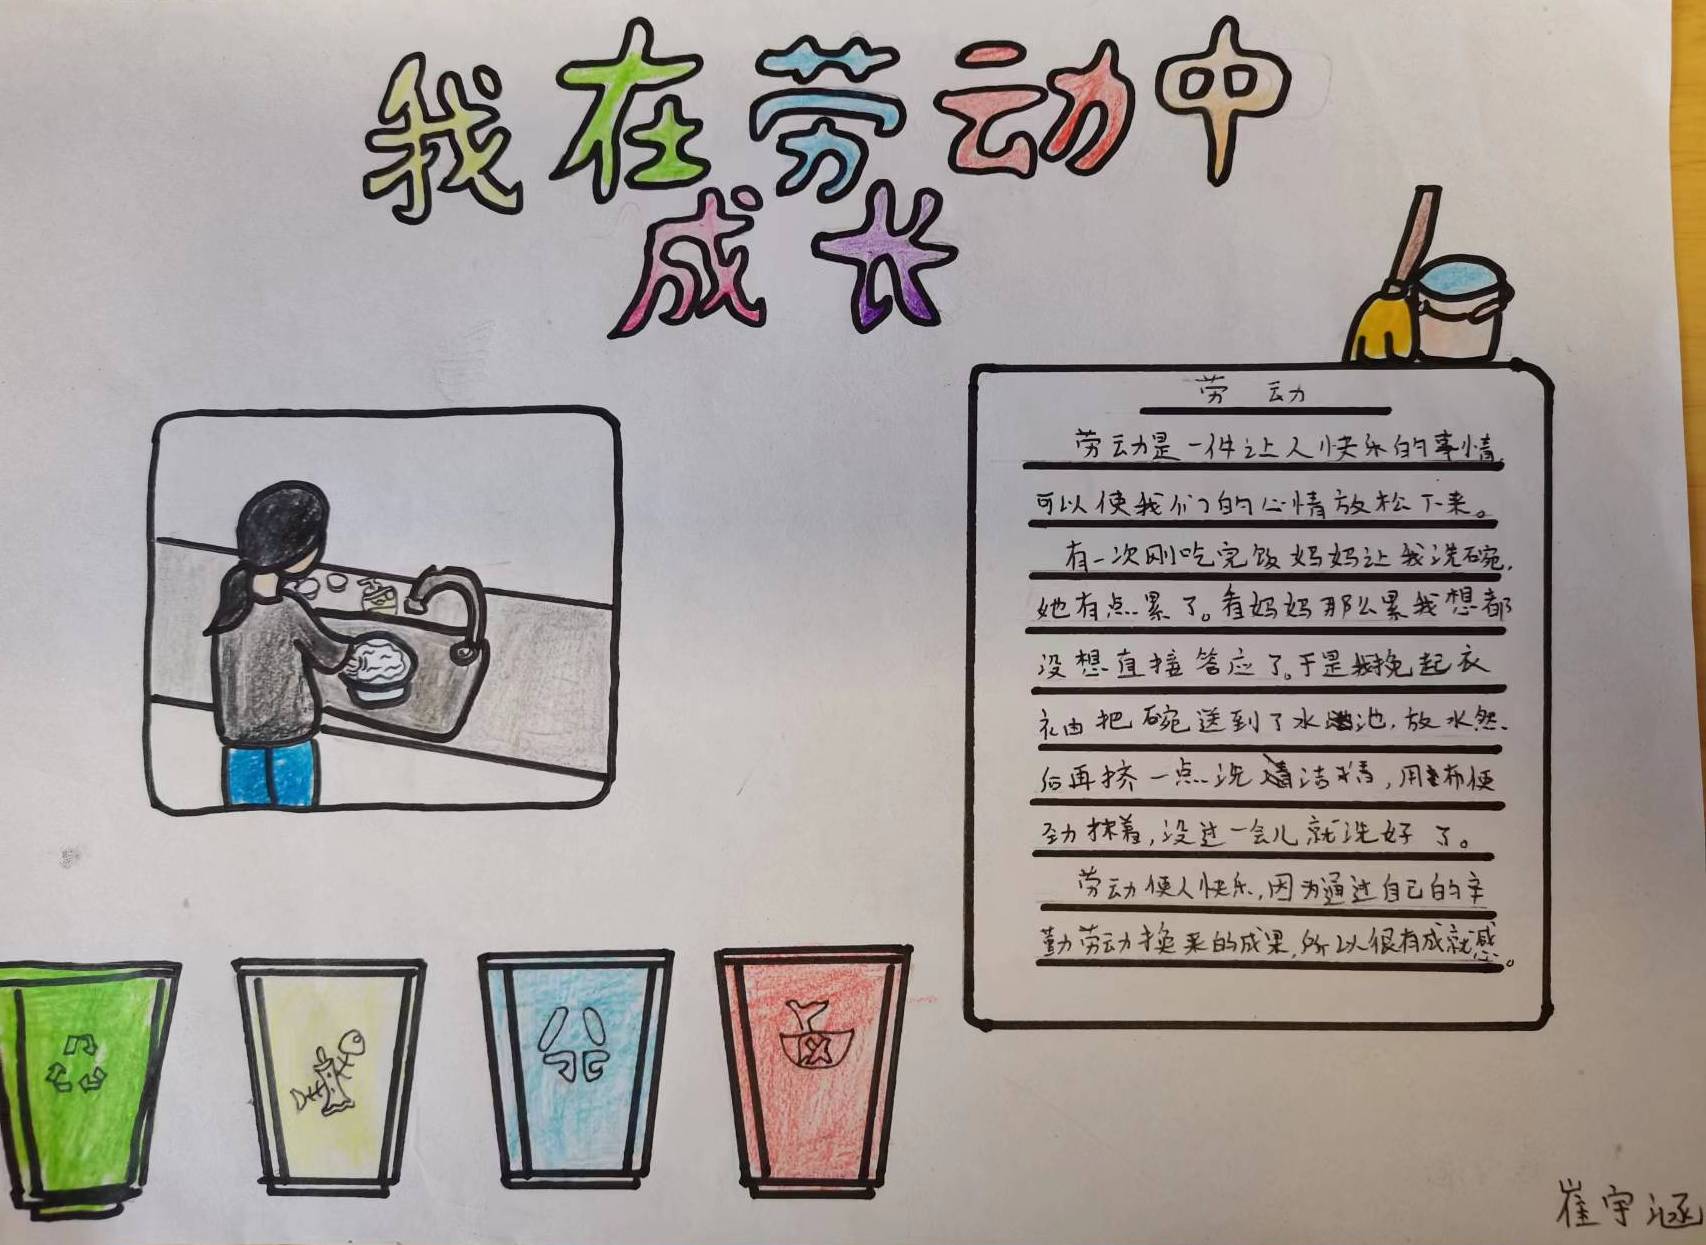 我在劳动中
成长
劳动
劳动是一件让人快乐的事情,
可以使我们的心情放松下来。
有一次刚吃完饭妈妈让我洗碗,
她有点累了。看妈妈那么累我想都
没想直接答应了。于是我挽起衣
袖把碗送到了水池,放水然
后再挤一点洗洁精,用布使
劲抹着,没过一会儿就洗好了。
劳动使人快乐,因为通过自己的辛
勤劳动换来的成果,所以很有成就感。
崔宇涵